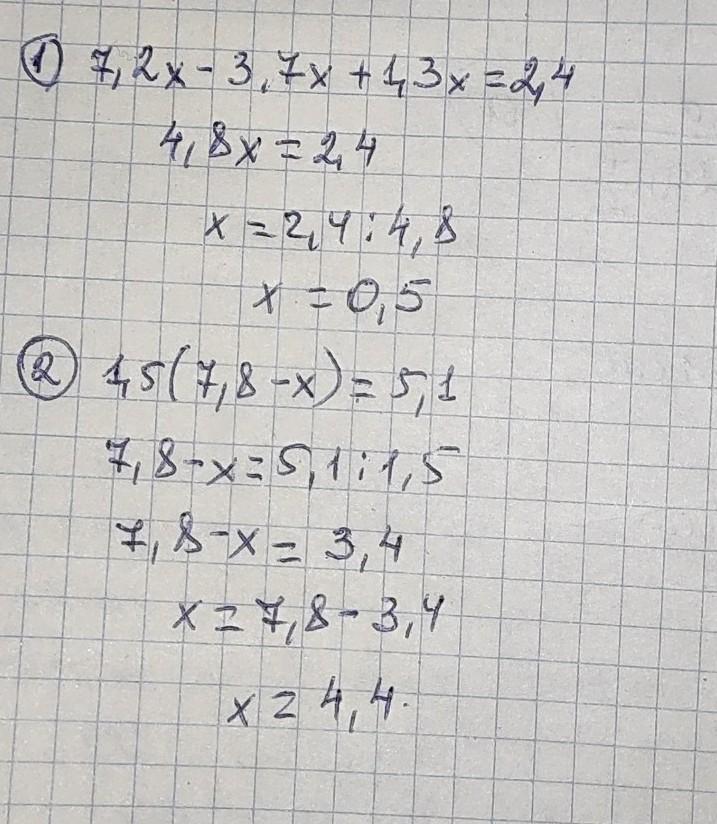 1) 7,2x - 3,7x + 1,3x = 2,4
4,8x = 2,4
x = 2,4 : 4,8
x = 0,5
2 1,5(7,8 - x) = 5,1
7,8 - x = 5,1 : 1,5
7,8 - x = 3,4
x = 7,8 - 3,4
x = 4,4.